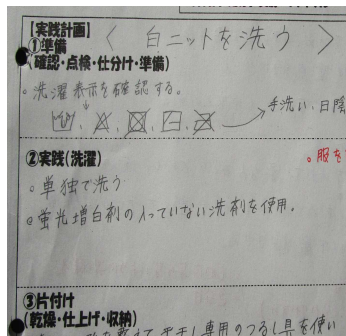 【実践計画】
〈 白ニットを洗う 〉
①準備
(確認・点検・仕分け・準備)
。洗濯表示を確認する。
手洗い、日陰
②実践(洗濯)
。服を
。単独で洗う
。蛍光増白剤の入っていない洗剤を使用。
③片付け
(乾燥・仕上げ・収納)
専用のつるし具を使い